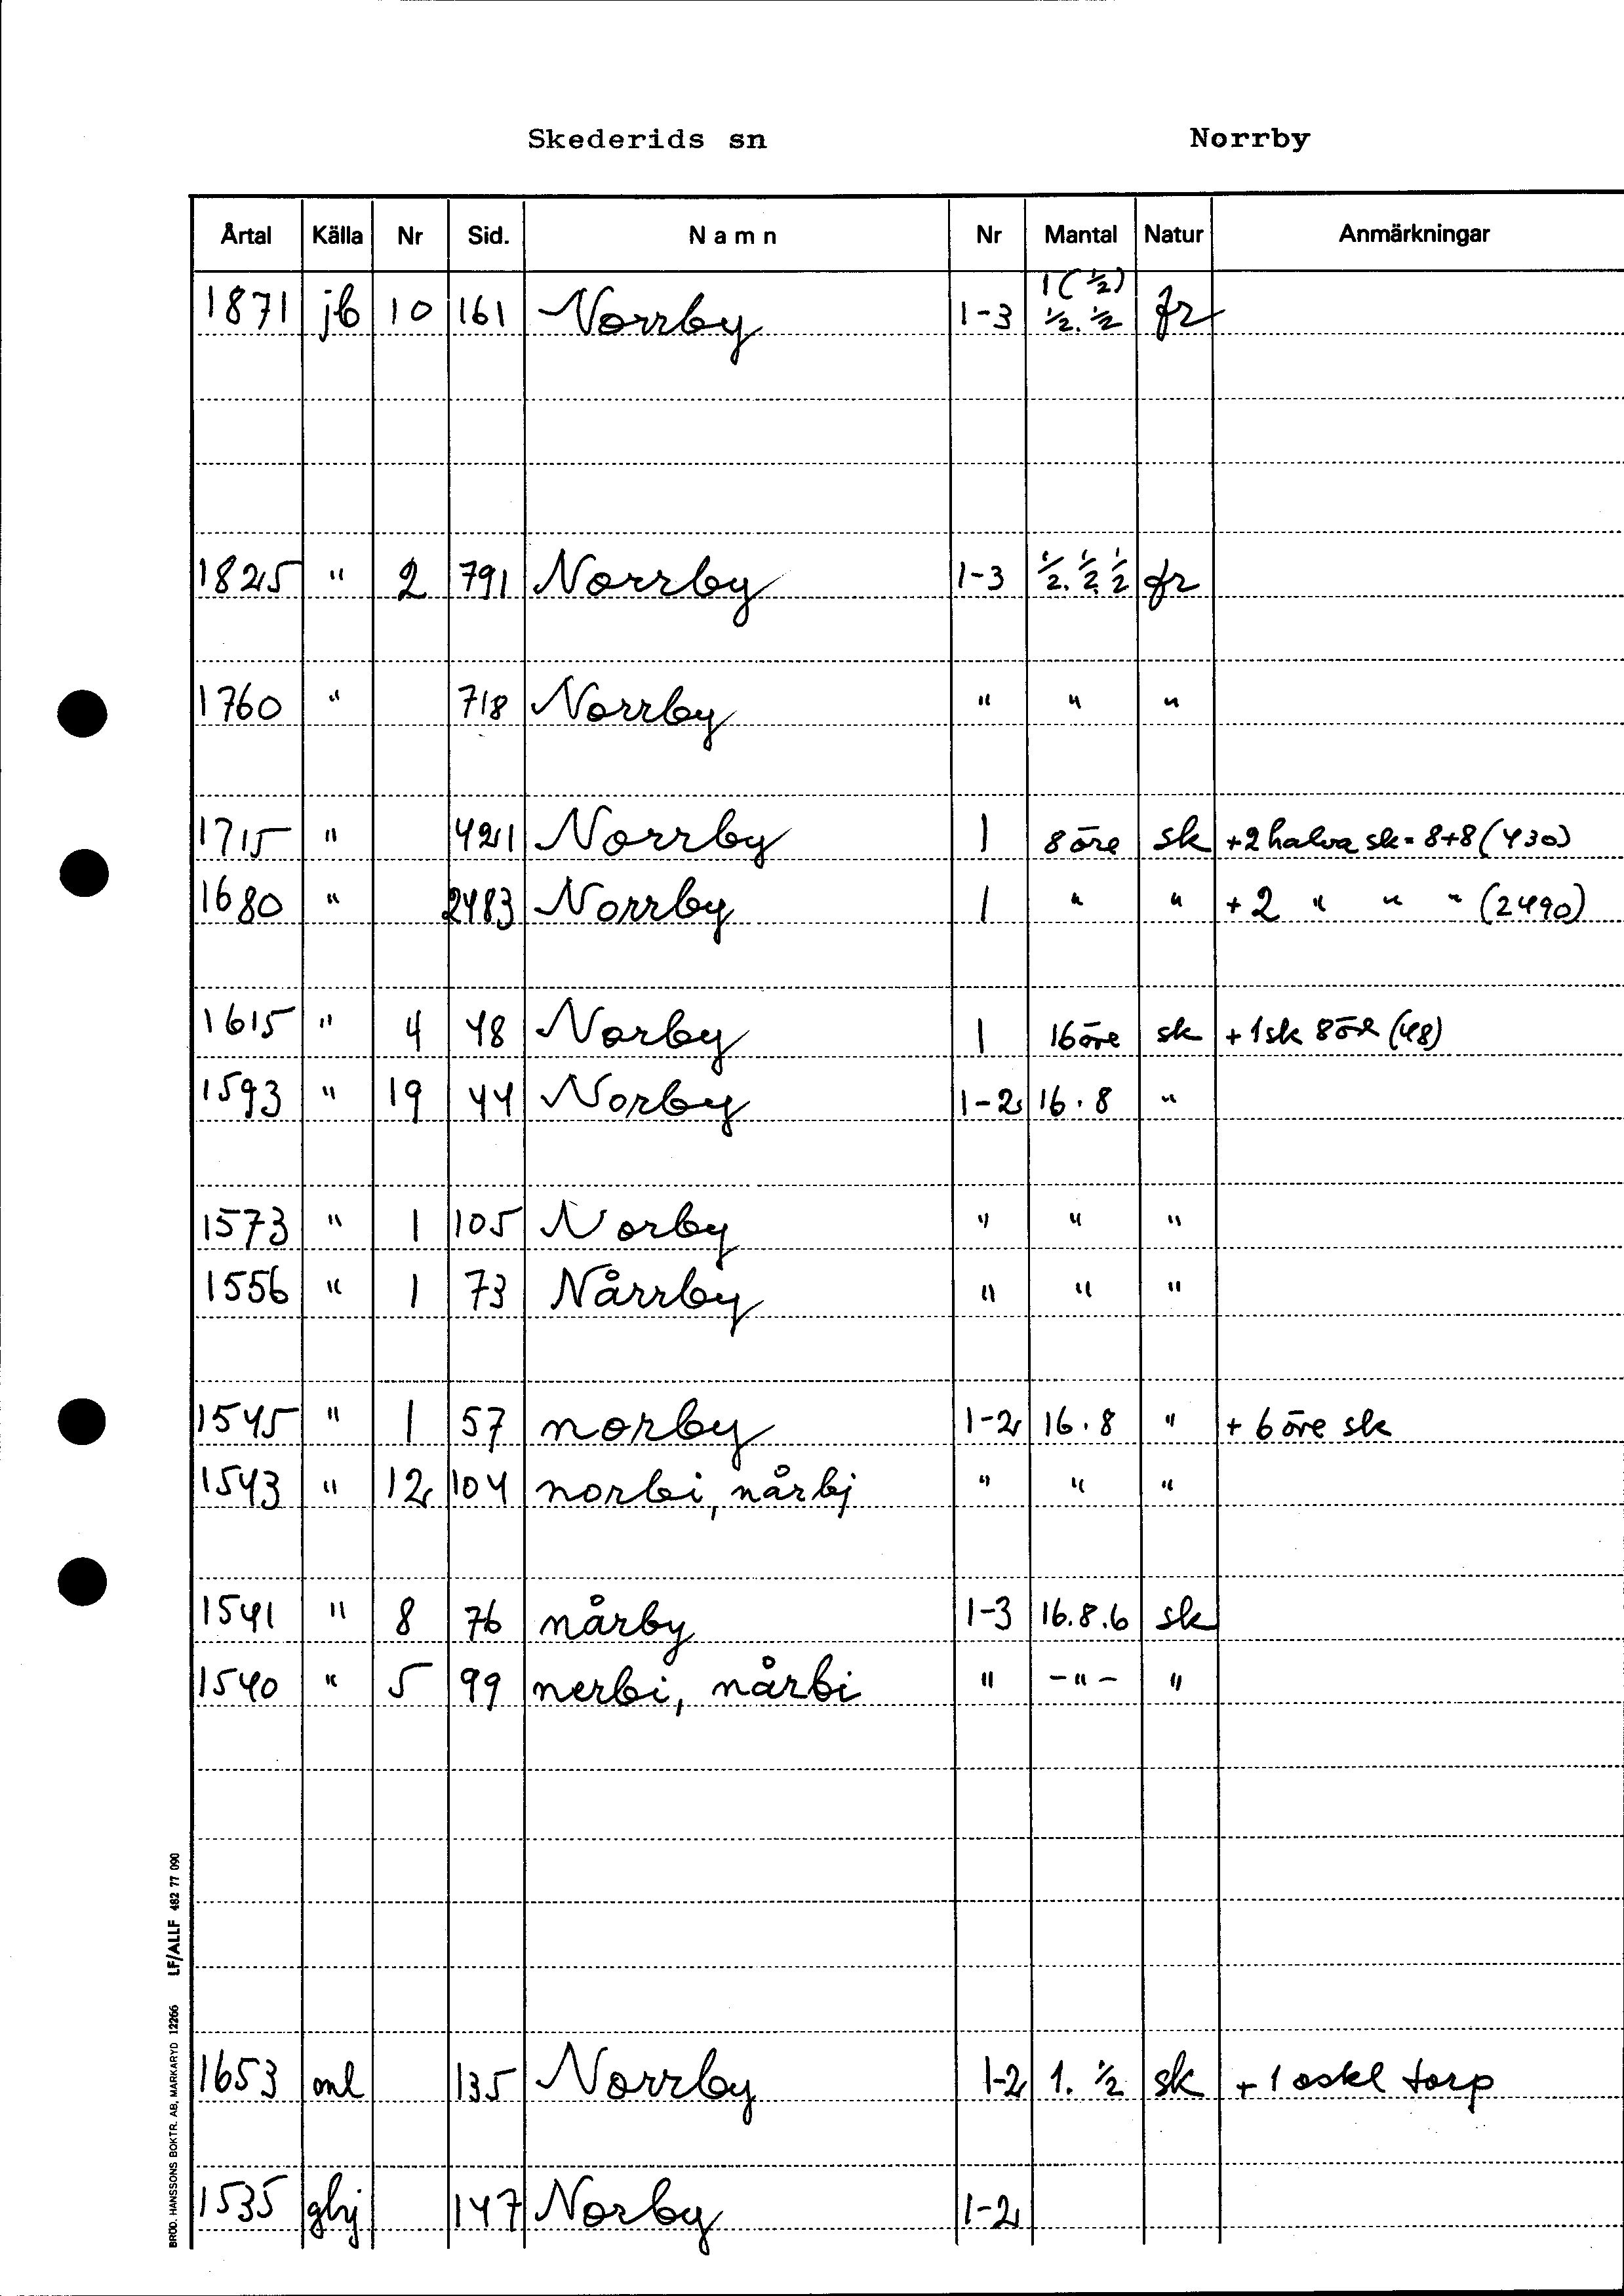 Skederids sn Norrby
Årtal Källa Nr Sid. Namn Nr Mantal Natur Anmärkningar
1 (½)
1871 jb 10 161 Norrby 1-3 ½. ½ fr
1825 " 2 791 Norrby 1-3 ½. ½ ½ fr
1760 " 718 Norrby " " "
1715 " 421 Norrby 1 8 öre sk +2 halva sk = 8+8 (430)
1680 " 2483 Norrby 1 " " +2 " " " (2490)
1615 " 4 48 Norby 1 16 öre sk + 1 sk 8 öre (48)
1593 " 19 44 Norby 1-2 16 . 8 "
1573 " 1 105 Norby " " "
1556 " 1 73 Nårrby " " "
1545 " 1 57 norby 1-2 16 . 8 " + 6 öre sk
1543 " 12 104 norbi, nårbj " " "
1541 " 8 76 nårby 1-3 16.8.6 sk
1540 " 5 99 nerbi, nårbi " -"- "
1653 oml 135 Norrby 1-2 1. ½ sk + 1 oskl torp
1535 ghj 147 Norby 1-2
BRÖD. HANSSONS BOKTR. AB, MARKARYD 12266 LF/ALLF 482 77 090